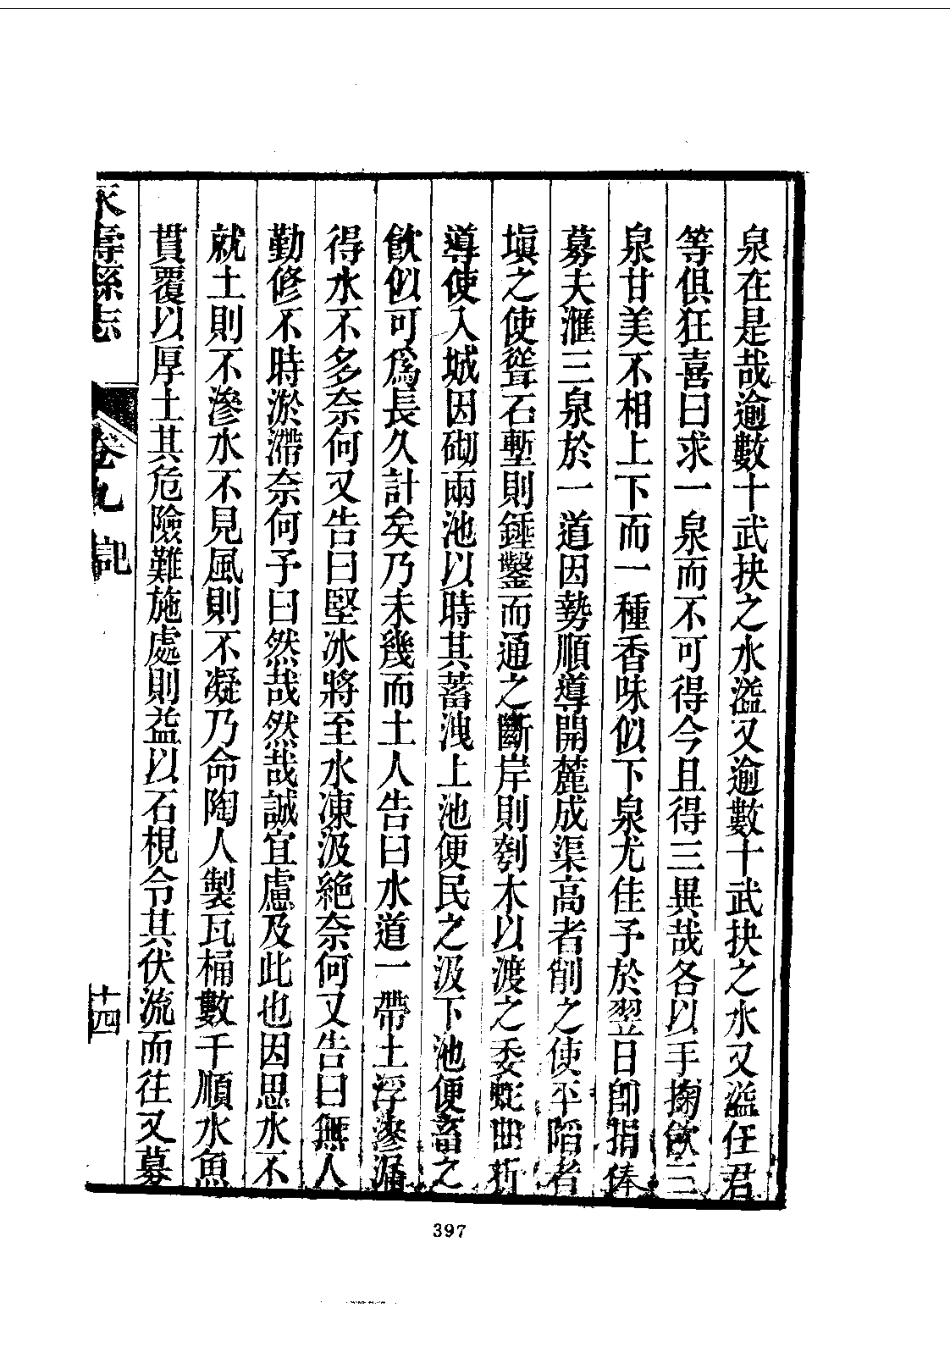 泉在是哉逾數十武抉之水溢又逾數十武抉之水又溢任君
等俱狂喜曰求一泉而不可得今且得三異哉各以手掬飲三
泉甘美不相上下而一種香味似下泉尤佳予於翌日卽捐俸
募夫滙三泉於一道因勢順導開麓成渠高者削之使平陷者
塡之使聳石塹則錘鑿而通之斷岸則刳木以渡之委蛇曲折
導使入城因砌兩池以時其蓄洩上池便民之汲下池便畜之
飮似可爲長久計矣乃未幾而土人告曰水道一帶土浮滲漏
得水不多奈何又告曰堅冰將至水凍汲絶奈何又告曰無人
勤修不時淤滯奈何予曰然哉然哉誠宜慮及此也因思水不
就土則不滲水不見風則不凝乃命陶人製瓦桶數千順水魚
貫覆以厚土其危險難施處則益以石梘令其伏流而往又募
縣志 卷九 記 十四
397